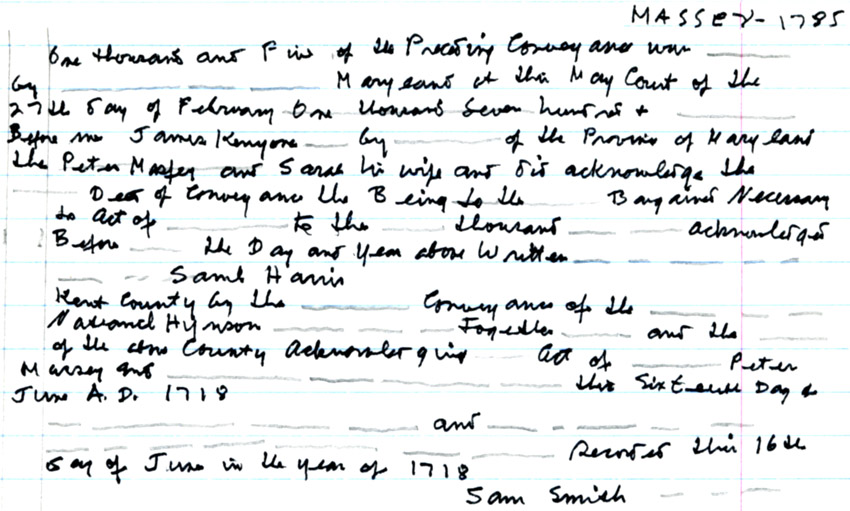 MASSEY - 1785
One thousand and Five of the Preceding Conveyance was
by Maryland at this May Court of the
27th Day of February One thousand Seven hundred +
Before me James Kenyone by of the Province of Maryland
the Peter Massey and Sarah his wife and did acknowledge the
Deed of Conveyance the Being to the Bargained Necessary
to Act of to the thousand acknowledged
Before the Day and Year above Written
Saml Harris
Kent County by the Conveyance of the
Nathaniel Hynson Together and the
of the above County Acknowledging Act of Peter
Massey and this Sixteenth Day of
June A.D. 1718
and
Recorded this 16th
day of June in the year of 1718
Sam Smith